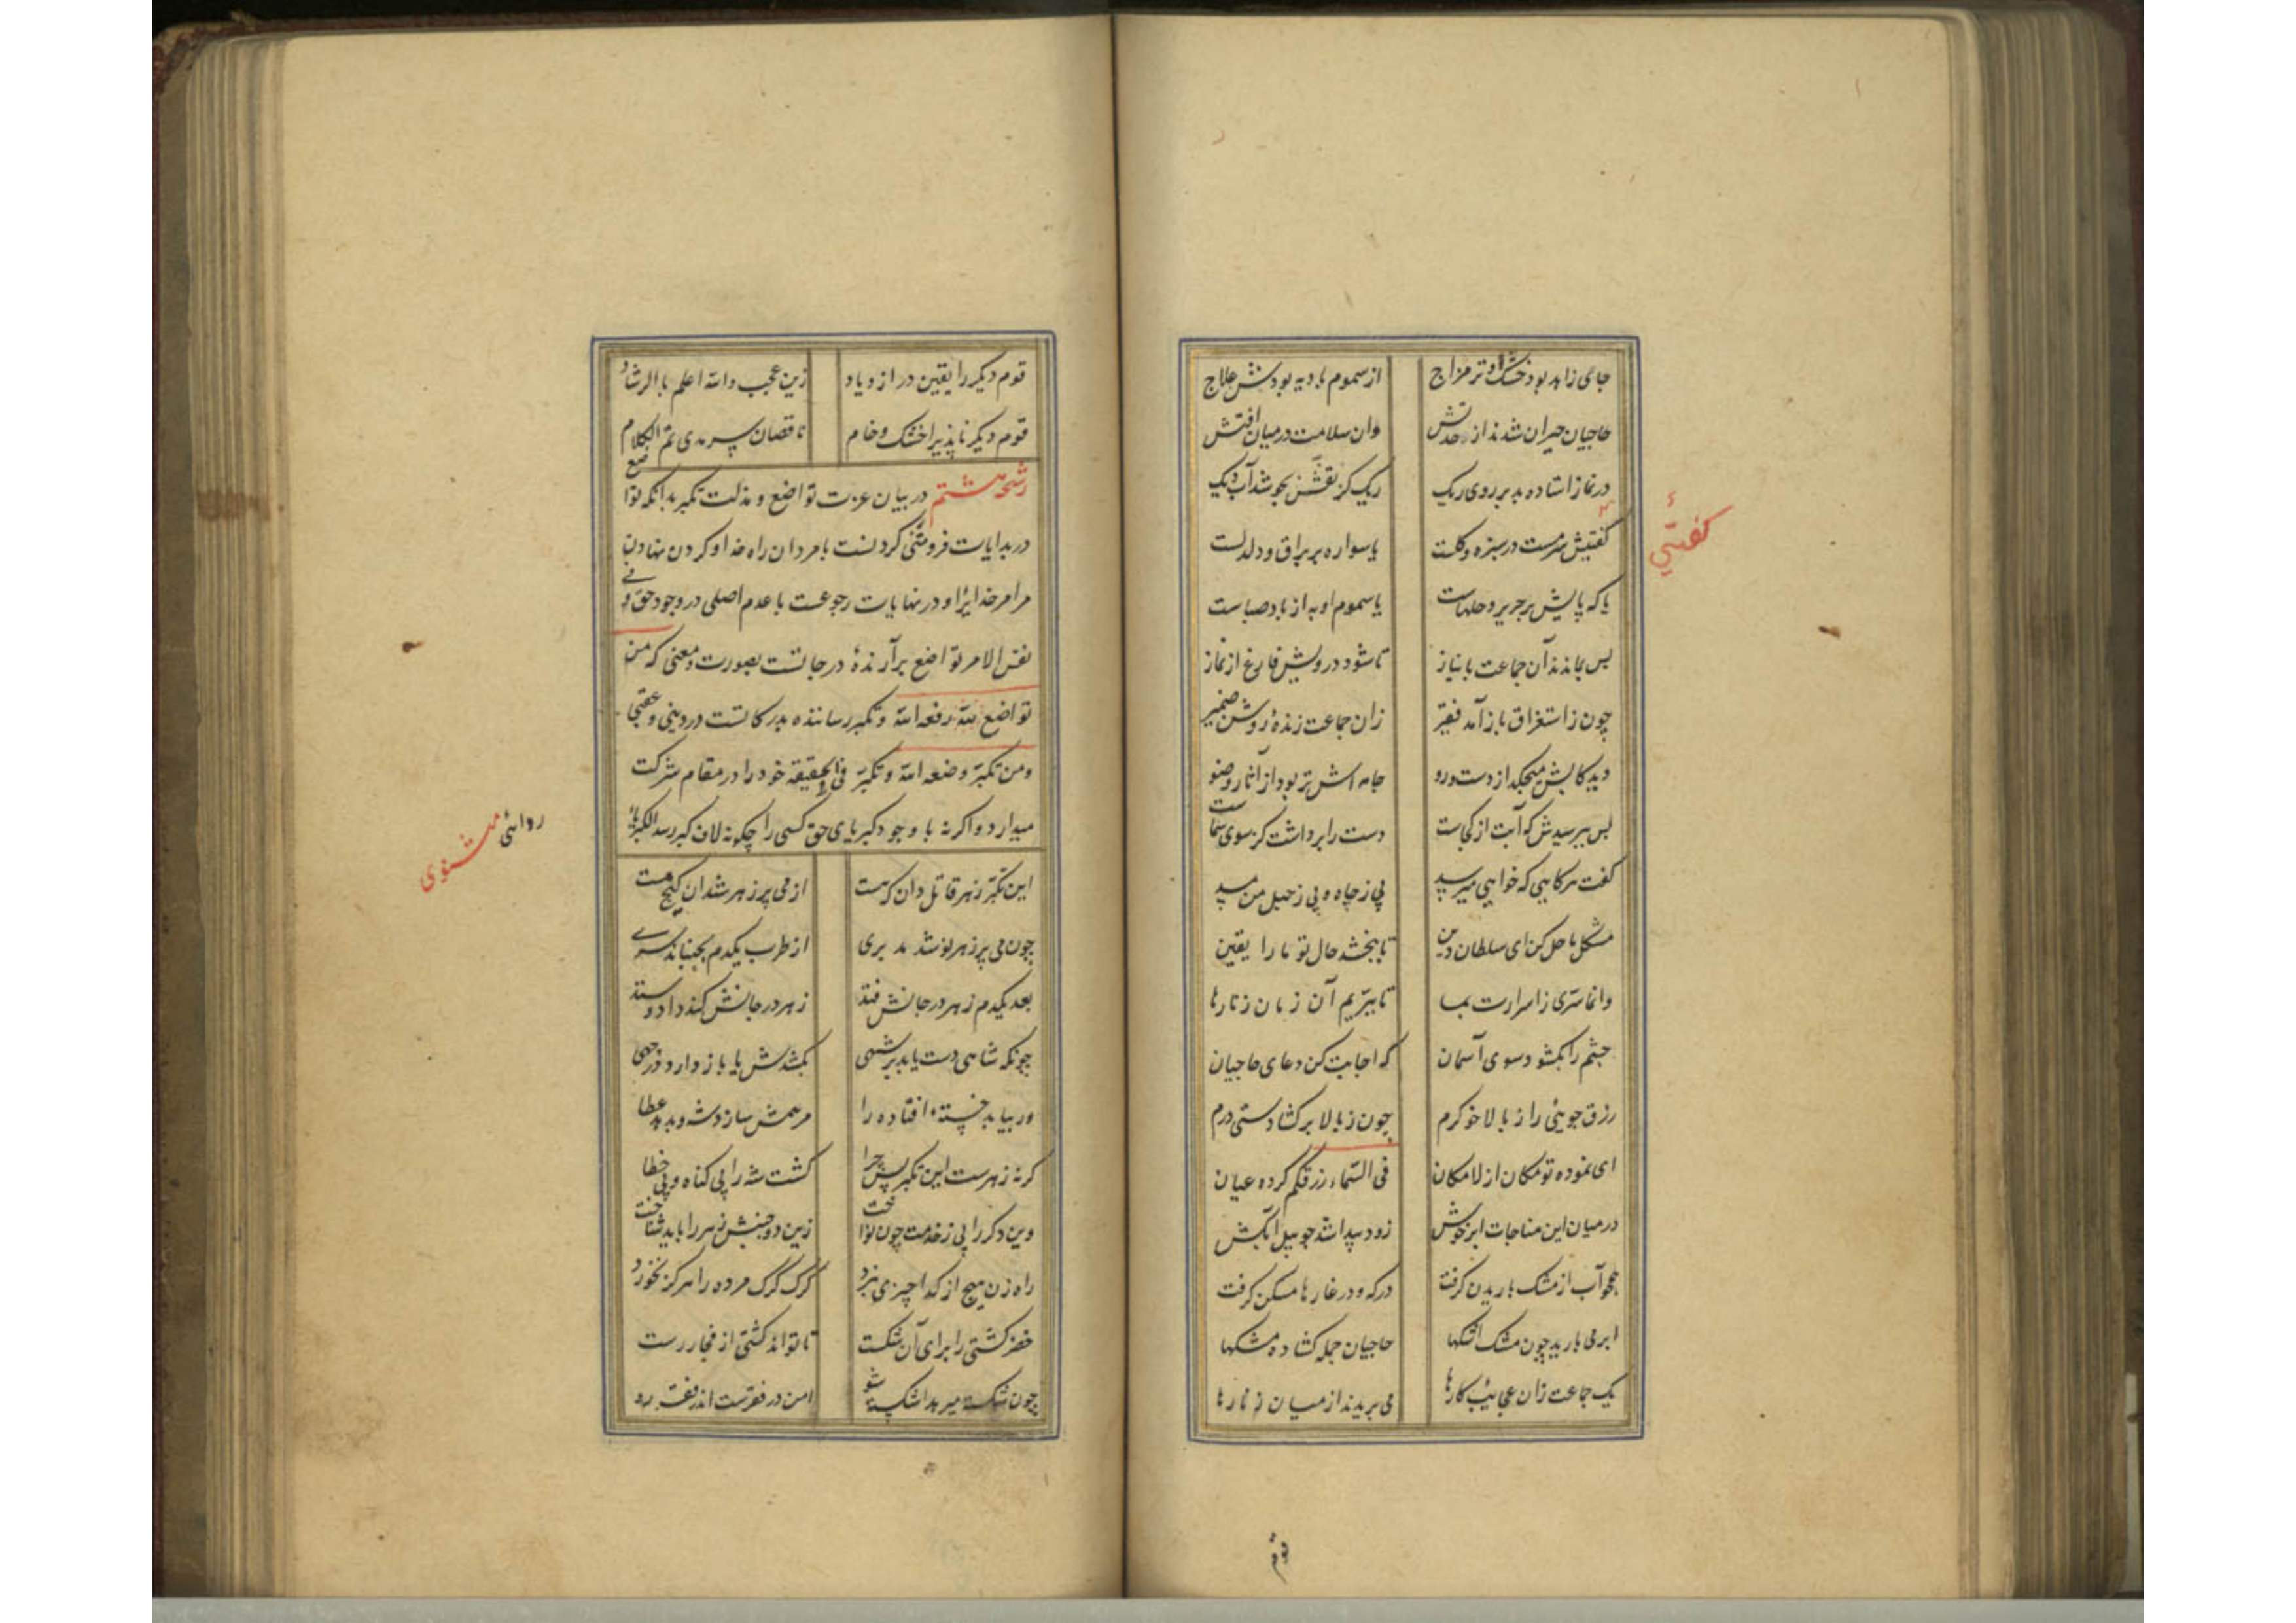 جای زاهد بود خشک او تر مزاج از سموم بادیه بودش علاج
حاجیان حیران شدند از وحدتش وان سلامت در میان آفتش
در نماز استاده بد بر روی ریک ریک کز تفش بجوشد آب دیک
کفتیش سرمست در سبزه و کلست یا سواره بر براق و دلدلست
یا که پایش بر حریر و حلهاست یا سموم او به از باد صباست
پس بماندند آن جماعت با نیاز تا شود درویش فارغ از نماز
چون ز استغراق باز آمد فقیر زان جماعت زنده روشن ضمیر
دید کابش میچکید از دست و رو جامه اش تر بود از آثار وضو
پس بپرسیدش که آبت از کجاست دست را برداشت کز سوی سماست
کفت هرکاهی که خواهی میرسد بی ز چاه و بی ز حبل من مسد
مشکل ما حل کن ای سلطان دین تا ببخشد حال تو ما را یقین
وانما سرّی ز اسرارت بما تا ببرّیم آن زمان زنارها
چشم را بکشود سوی آسمان که اجابت کن دعای حاجیان
رزق جویئی را ز بالا خو کرم چون ز بالا برکشادستی درم
ای نموده تو مکان از لامکان فی السّماء رزقکم کرده عیان
در میان این مناجات ابر خوش زود پیدا شد چو پیل آبکش
همچو آب از مشک باریدن کرفت در که و در غارها مسکن کرفت
ابر می بارید چون مشک اشکها حاجیان جمله کشاده مشکها
یک جماعت زان عجایب کارها می بریدند از میان زنارها
کفتئی
قوم
قوم دیکر را یقین در ازدیاد زین عجب والله اعلم بالرشاد
قوم دیکر ناپذیرا خشک و خام ناقصان سرمدی تم الکلام
رشحه هشتم در بیان عزت تواضع و مذلت تکبر بدانکه تواضع
در بدایات فروتنی کردنست با مردان راه خدا و کردن نهادن
مر امر خدایرا و در نهایات رجوعست با عدم اصلی در وجود حق و فی
نفس الامر تواضع برآرنده درجاتست بصورت و معنی که من
تواضع لله رفعه الله و تکبر رساننده بدرکاتست در دینی و عقبی
ومن تکبّر وضعه الله و تکبّر فی الحقیقه خود را در مقام شرکت
میدارد واکرنه با وجود کبریای حق کسی را چکونه لاف کبر رسد
این تکبّر زهر قاتل دان که هست از می پر زهر شد آن کیج مست
چون می پر زهر نوشد مدبری از طرب یکدم بجنباند سری
بعد یکدم زهر در جانش فتد زهر در جانش کند داد و ستد
چونکه شاهی دست یابد بر شهی بکشدش یا باز دارد در چهی
ور بیابد خسته افتاده را مرهمش سازد شه و بدهد عطا
کر نه زهرست این تکبر پس چرا کشت شه را بی کناه و بی خطا
وین دکر را بی ز خدمت چون نواخت زین دو جنبش زهر را باید شناخت
راه زن هیچ از کدا چیزی نبرد کرک کرک مرده را هرکز نخورد
خضر کشتی را برای آن شکست تا تواند کشتی از فجار رست
چون شکسته میرهد اشکسته شو امن در فقرست اندر فقر رو
مثنوی